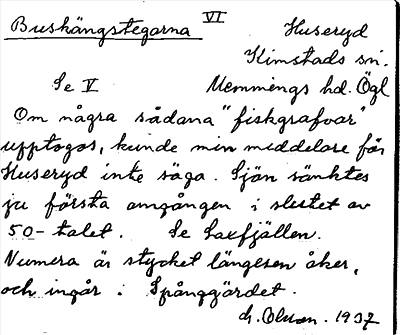 Bushängstegarna VI Huseryd
Kimstads sn.
Se V Memmings hd. Ögl
Om några sådana "fiskgrafvar"
upptogos, kunde min meddelare för
Huseryd inte säga. Sjön sänktes
ju första omgången i slutet av
50-talet. Se Laxfjällen.
Numera är stycket längesen åker,
och ingår i Spånggärdet.
G. Olson. 1937